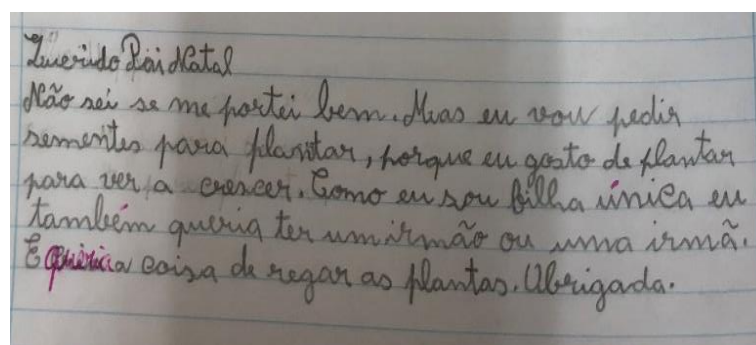 Querido Pai Natal
Não sei se me portei bem. Mas eu vou pedir
sementes para plantar, porque eu gosto de plantar
para ver a crescer. Como eu sou filha única eu
também queria ter um irmão ou uma irmã.
E queria a coisa de regar as plantas. Obrigada.